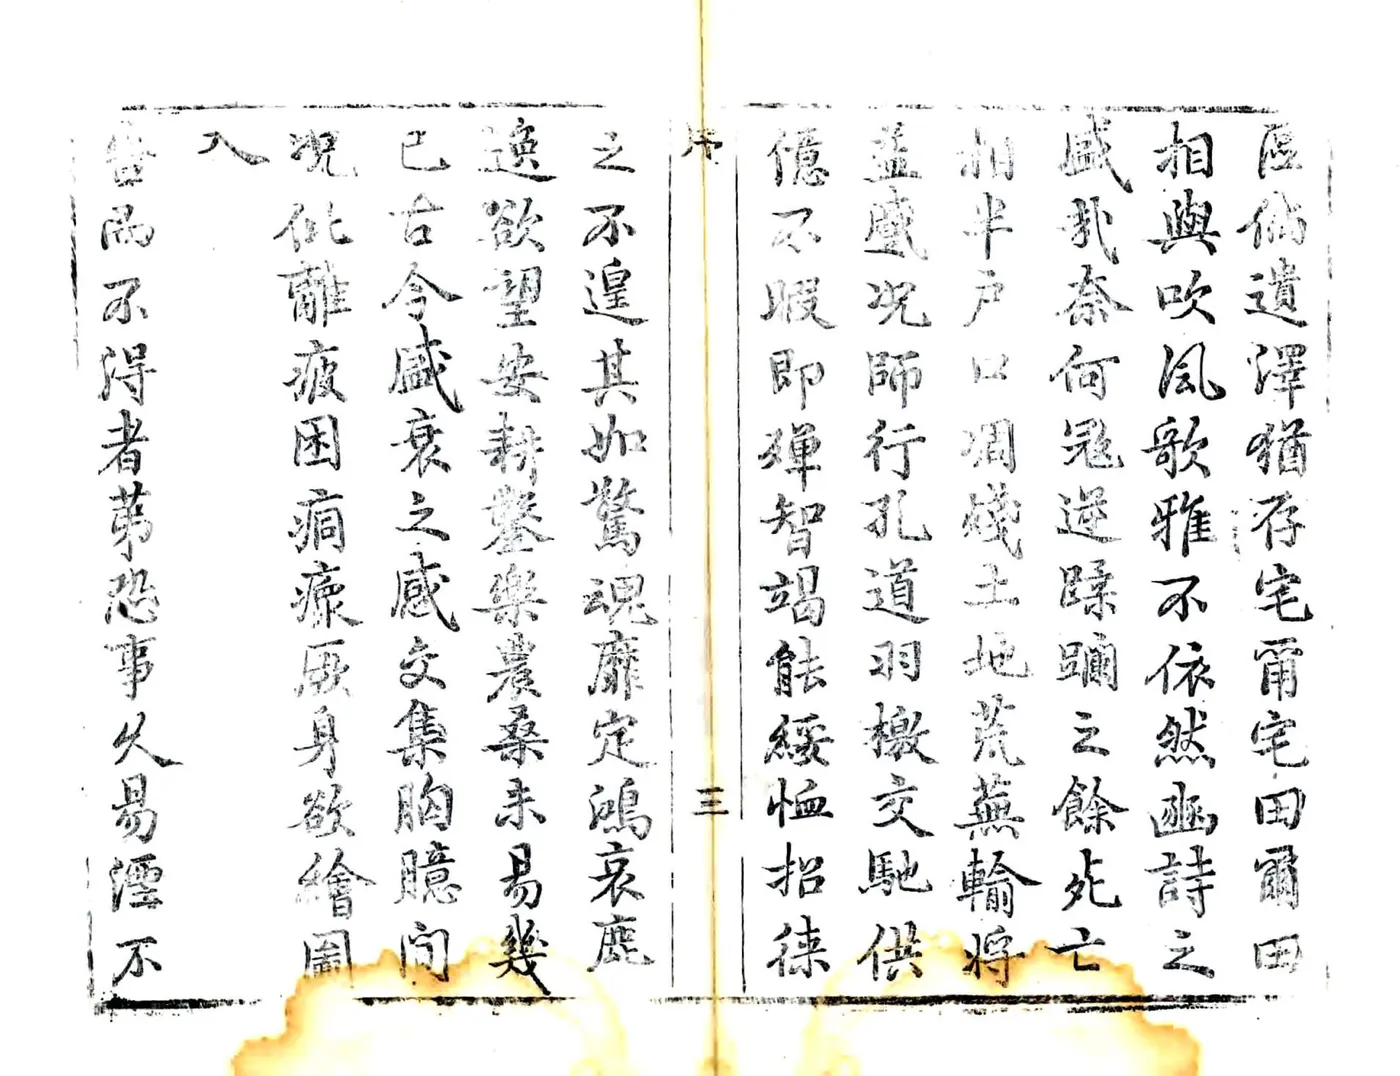 區俻遺澤猶存宅爾宅田爾田
相與吹泒歌雅不依然豳詩之
盛㦲奈何冦逆蹂躪之餘死亡
相半户口凋殘土地荒蕪輪將
盖蹙况師行孔道羽檄交馳供
億不暇即殫智竭能綏恤招徠
序
三
之不遑其如驚魂靡定鴻哀鹿
逸欲望安耕鑿樂農桑未易幾
已古今盛衰之感交集胸臆间
况仳離疲困痌瘝厥身欲繪圖
入
告而不得者苐恐事久易湮不